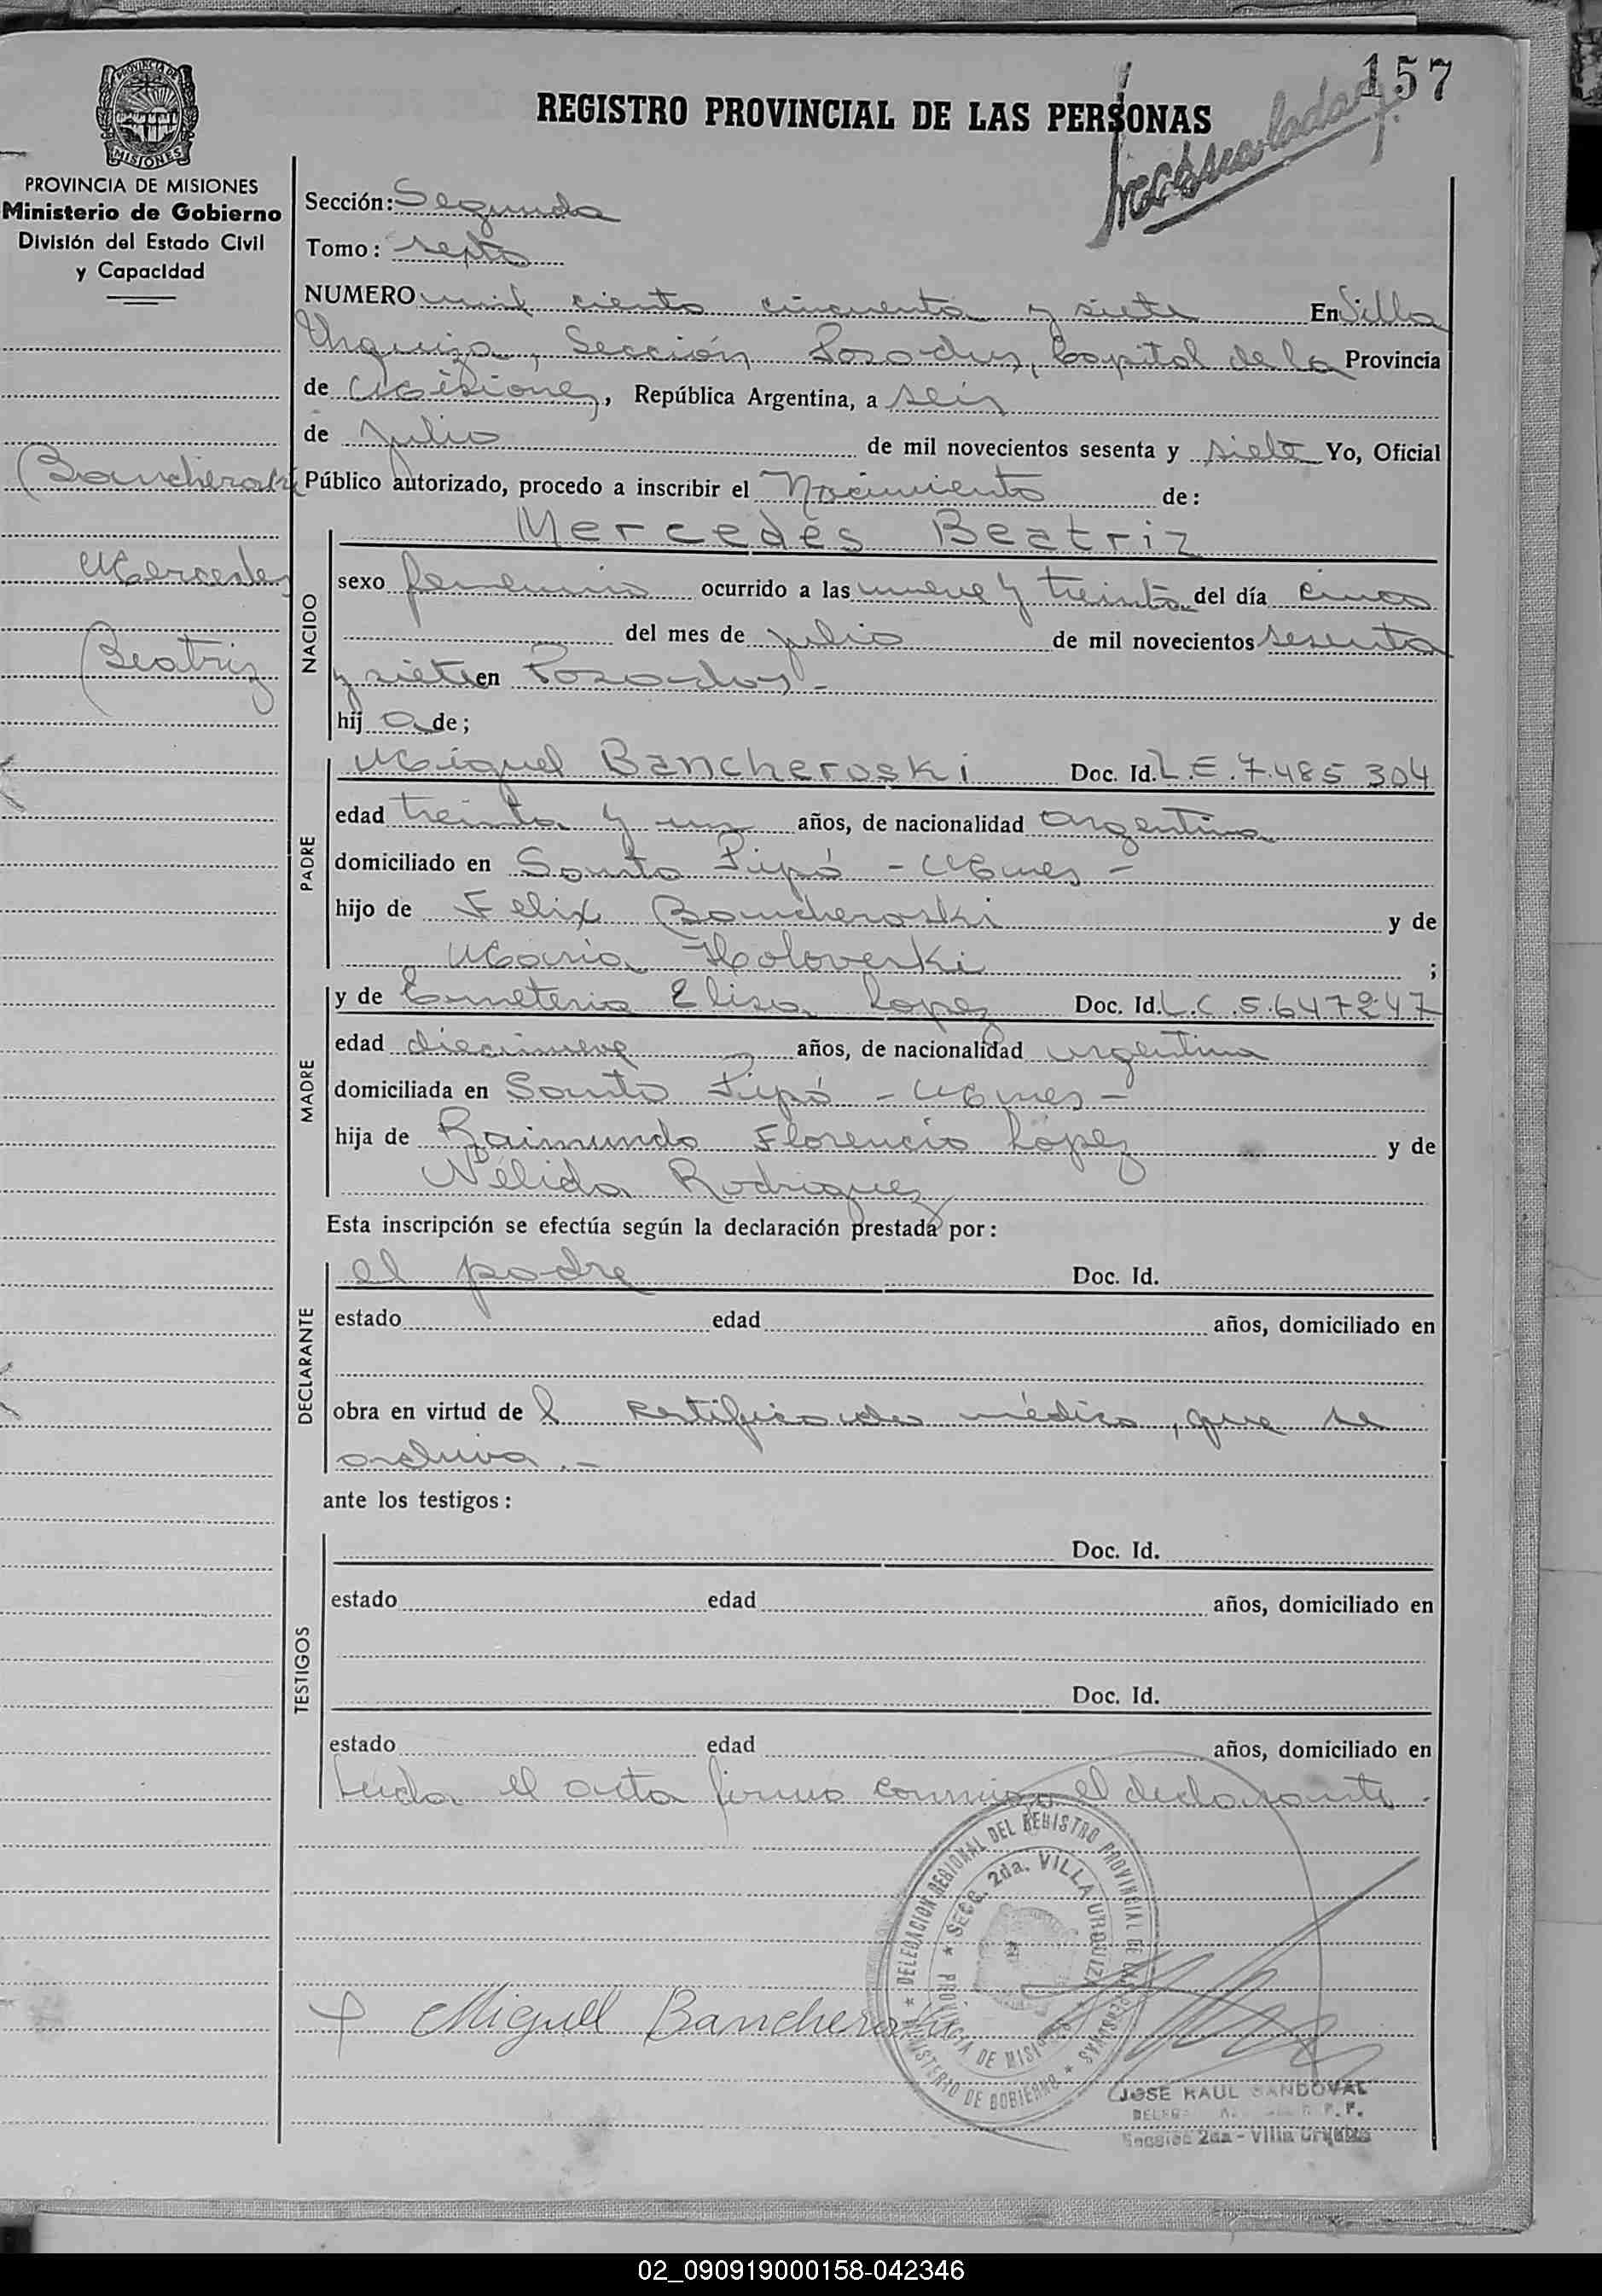 157
REGISTRO PROVINCIAL DE LAS PERSONAS
PROVINCIA DE MISIONES
PROVINCIA DE MISIONES
Ministerio de Gobierno
División del Estado Civil
y Capacidad
Bancheroski
Mercedes
Beatriz
Sección: Segunda
Tomo: septo
NUMERO mil ciento cincuenta y siete En Villa
Urquiza, Sección Posadas, Capital de la Provincia
de Misiones, República Argentina, a seis
de julio de mil novecientos sesenta y siete Yo, Oficial
Público autorizado, procedo a inscribir el Nacimiento de:
NACIDO
Mercedes Beatriz
sexo femenino ocurrido a las nueve y treinta del día cinco
del mes de julio de mil novecientos sesenta
y siete en Posadas -
hij a de;
PADRE
Miguel Bancheroski Doc. Id. L.E. 7.485.304
edad treinta y un años, de nacionalidad argentina
domiciliado en Santo Pipó - Mnes -
hijo de Felix Bancheroski y de
Maria Holoveski ;
MADRE
y de Emeteria Elisa Lopez Doc. Id. L.C. 5.647247
edad diecinueve años, de nacionalidad argentina
domiciliada en Santo Pipó - Mnes -
hija de Raimundo Florencio López y de
Nélida Rodriguez
Esta inscripción se efectúa según la declaración prestada por:
DECLARANTE
el padre Doc. Id.
estado edad años, domiciliado en
obra en virtud de l certificado médico, que se
archiva.-
ante los testigos:
TESTIGOS
Doc. Id.
estado edad años, domiciliado en
Doc. Id.
estado edad años, domiciliado en
Leida el acta firma conmigo el declarante.
DELEGACION REGIONAL DEL REGISTRO PROVINCIAL DE LAS PERSONAS
SECC. 2da. VILLA URQUIZA
PROVINCIA DE MISIONES
MINISTERIO DE GOBIERNO
Miguel Bancheroski
JOSE RAUL SANDOVAL
Sección 2da - Villa Urquiza
02_090919000158-042346